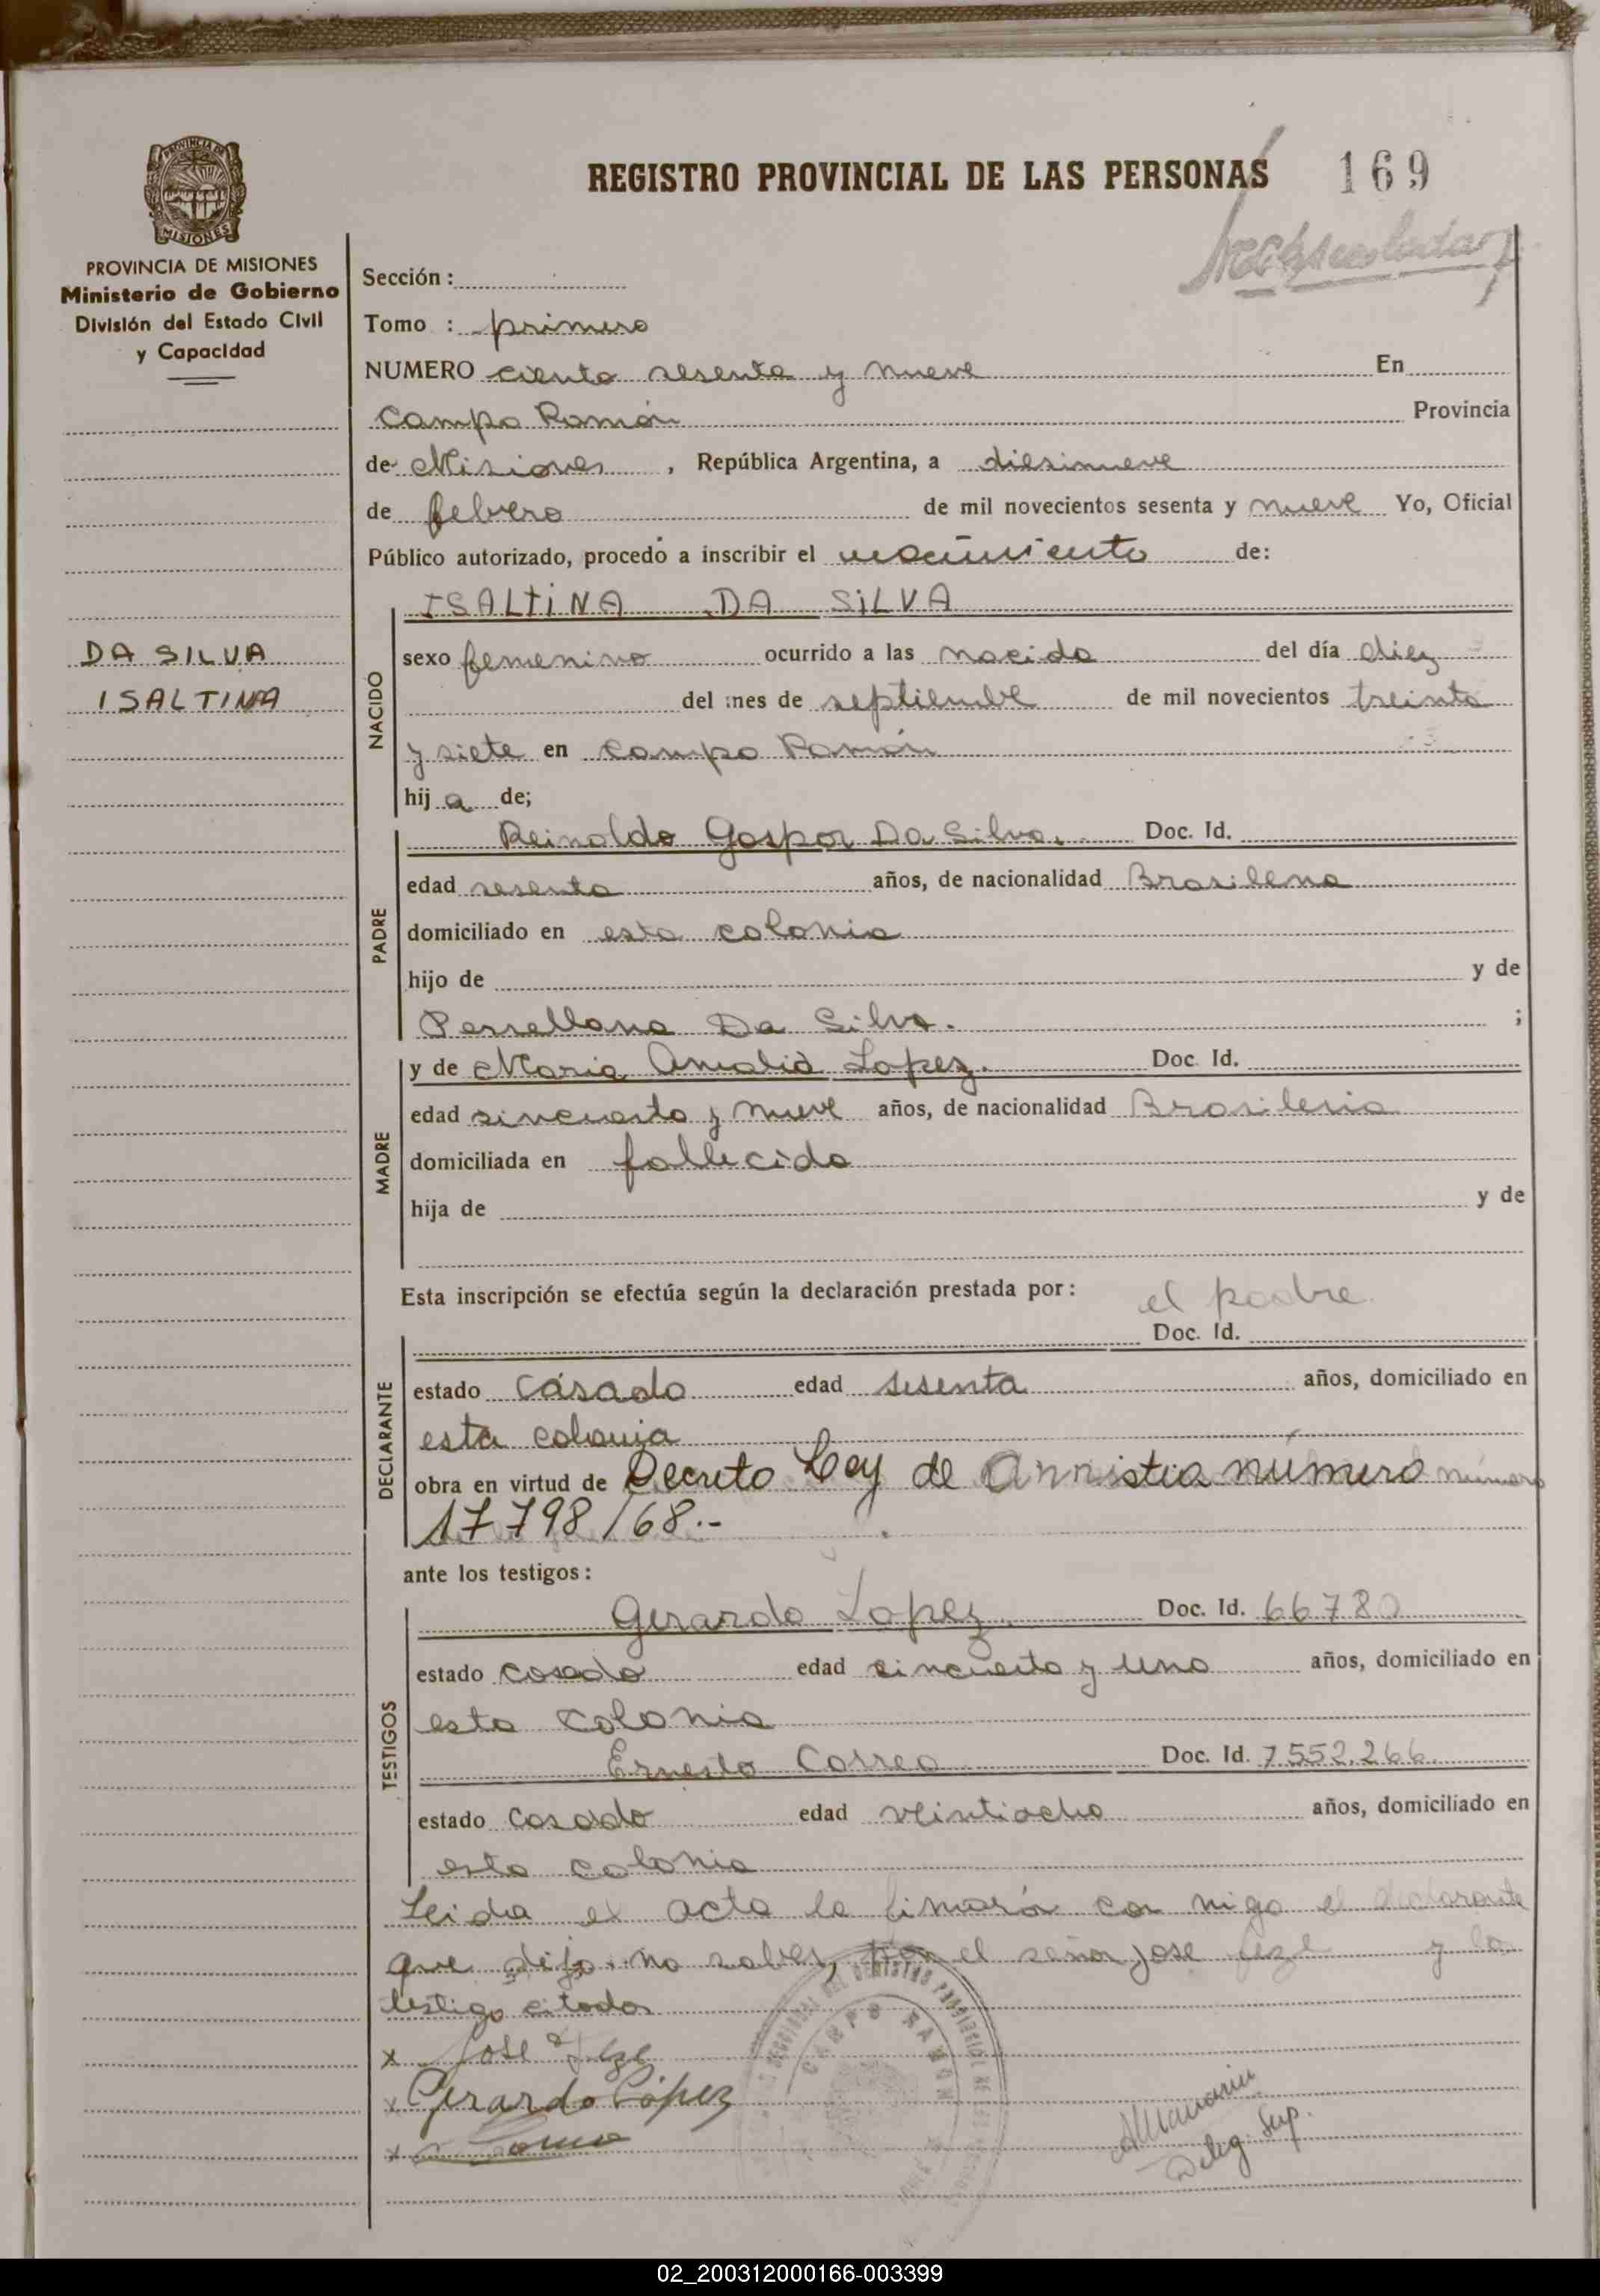 REGISTRO PROVINCIAL DE LAS PERSONAS 169
PROVINCIA DE
MISIONES
PROVINCIA DE MISIONES
Ministerio de Gobierno
División del Estado Civil
y Capacidad
Sección :
Tomo : primero
NUMERO ciento sesenta y nueve En
Campo Ramón Provincia
de Misiones , República Argentina, a diesinueve
de febrero de mil novecientos sesenta y nueve Yo, Oficial
Público autorizado, procedo a inscribir el nacimiento de:
ISALTINA DA SILVA
DA SILVA
ISALTINA
NACIDO
sexo femenino ocurrido a las nacida del día diez
del mes de septiembre de mil novecientos treinta
y siete en Campo Ramón
hij a de;
PADRE
Reinoldo Gaspar Da Silva. Doc. Id.
edad sesenta años, de nacionalidad Brasilena
domiciliado en esta colonia
hijo de y de
Da Silva. ;
MADRE
y de Maria Amalia Lopez. Doc. Id.
edad sincuenta y nueve años, de nacionalidad Brasilena
domiciliada en fallecida
hija de y de
Esta inscripción se efectúa según la declaración prestada por: el padre.
Doc. Id.
DECLARANTE
estado casado edad sesenta años, domiciliado en
esta colonia
obra en virtud de Decreto Ley de Amnistia número número
17798/68.-
ante los testigos:
TESTIGOS
Gerardo Lopez. Doc. Id. 66780
estado casado edad cincuenta y uno años, domiciliado en
esta colonia
Ernesto Correa Doc. Id. 7552.266
estado casado edad veintiocho años, domiciliado en
esta colonia
Leida el acta la fimarón con migo el declarante
que dijo no saber, por el señor jose y lo
testigo citados
x Jose
x Gerardo López
x
CAMPO RAMON
Deleg. Sup.
02_200312000166-003399